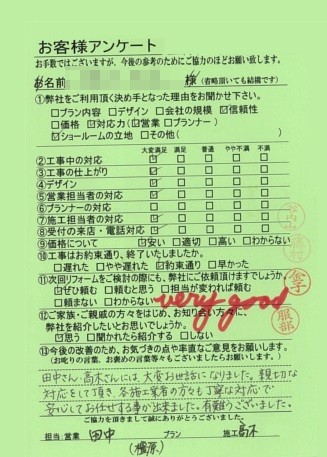 お客様アンケート
お手数ではございますが、今後の参考のためにご協力のほどお願い致します。
お名前 様 (省略頂いても結構です)
①弊社をご利用頂く決め手となった理由をお聞かせ下さい。
□プラン内容 □デザイン □会社の規模 ☑信頼性
□価格 ☑対応力(□営業 □プランナー)
☑ショールームの立地 □その他( )
大変満足 満足 普通 やや不満 不満
②工事中の対応 ☑ □ □ □ □
③工事の仕上がり ☑ □ □ □ □
④デザイン ☑ □ □ □ □
⑤営業担当者の対応 ☑ □ □ □ □
⑥プランナーの対応 □ □ □ □ □
⑦施工担当者の対応 ☑ □ □ □ □
⑧受付の来店・電話対応 ☑ □ □ □ □
⑨価格について ☑安い □適切 □高い □わからない
⑩工事はお約束通り、終了いたしましたか。
□遅れた □やや遅れた ☑約束通り □早かった
⑪次回リフォームをご検討の際にも、弊社にご依頼頂けますでしょうか。
☑ぜひ頼む □頼むと思う □担当が変われば頼む
□頼まない □わからない
very good
⑫ご家族・ご親戚の方々をはじめ、お知り合い方々に、
弊社を紹介したいとお思いでしょうか。
☑思う □聞かれたら紹介する □しない
服部
⑬今後の改善のため、お気づきの点や率直なご意見をお願いします。
(お叱りの言葉、お褒めの言葉等々もございましたらお願いします。)
田中さん・高木さんには、大変お世話になりました。親切な
対応をして頂き、各施工業者の方々も丁寧な対応で
安心してお任せする事が出来ました。有難うございました。
ご協力を頂きまして誠にありがとうございました。
担当:営業 田中 プラン 施工 高木
(橿原)